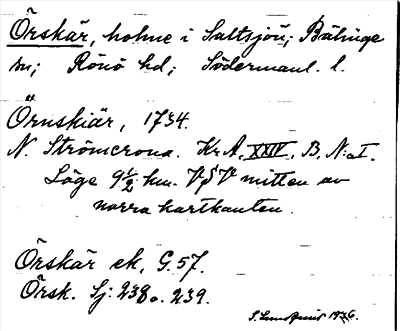 Örskär, holme i Saltsjön; Bälinge
sn; Rönö hd; Södermanl. l.
Örnskiär, 1734.
N. Strömcrona. Kr.A, XXIV, B, N:o 1.
Läge 9 1/2 km. VSV mitten av
norra kartkanten.
Örskär ek, G. 57.
Örsk. Sj: 238 o. 239.
S. Lundqvist 1926.